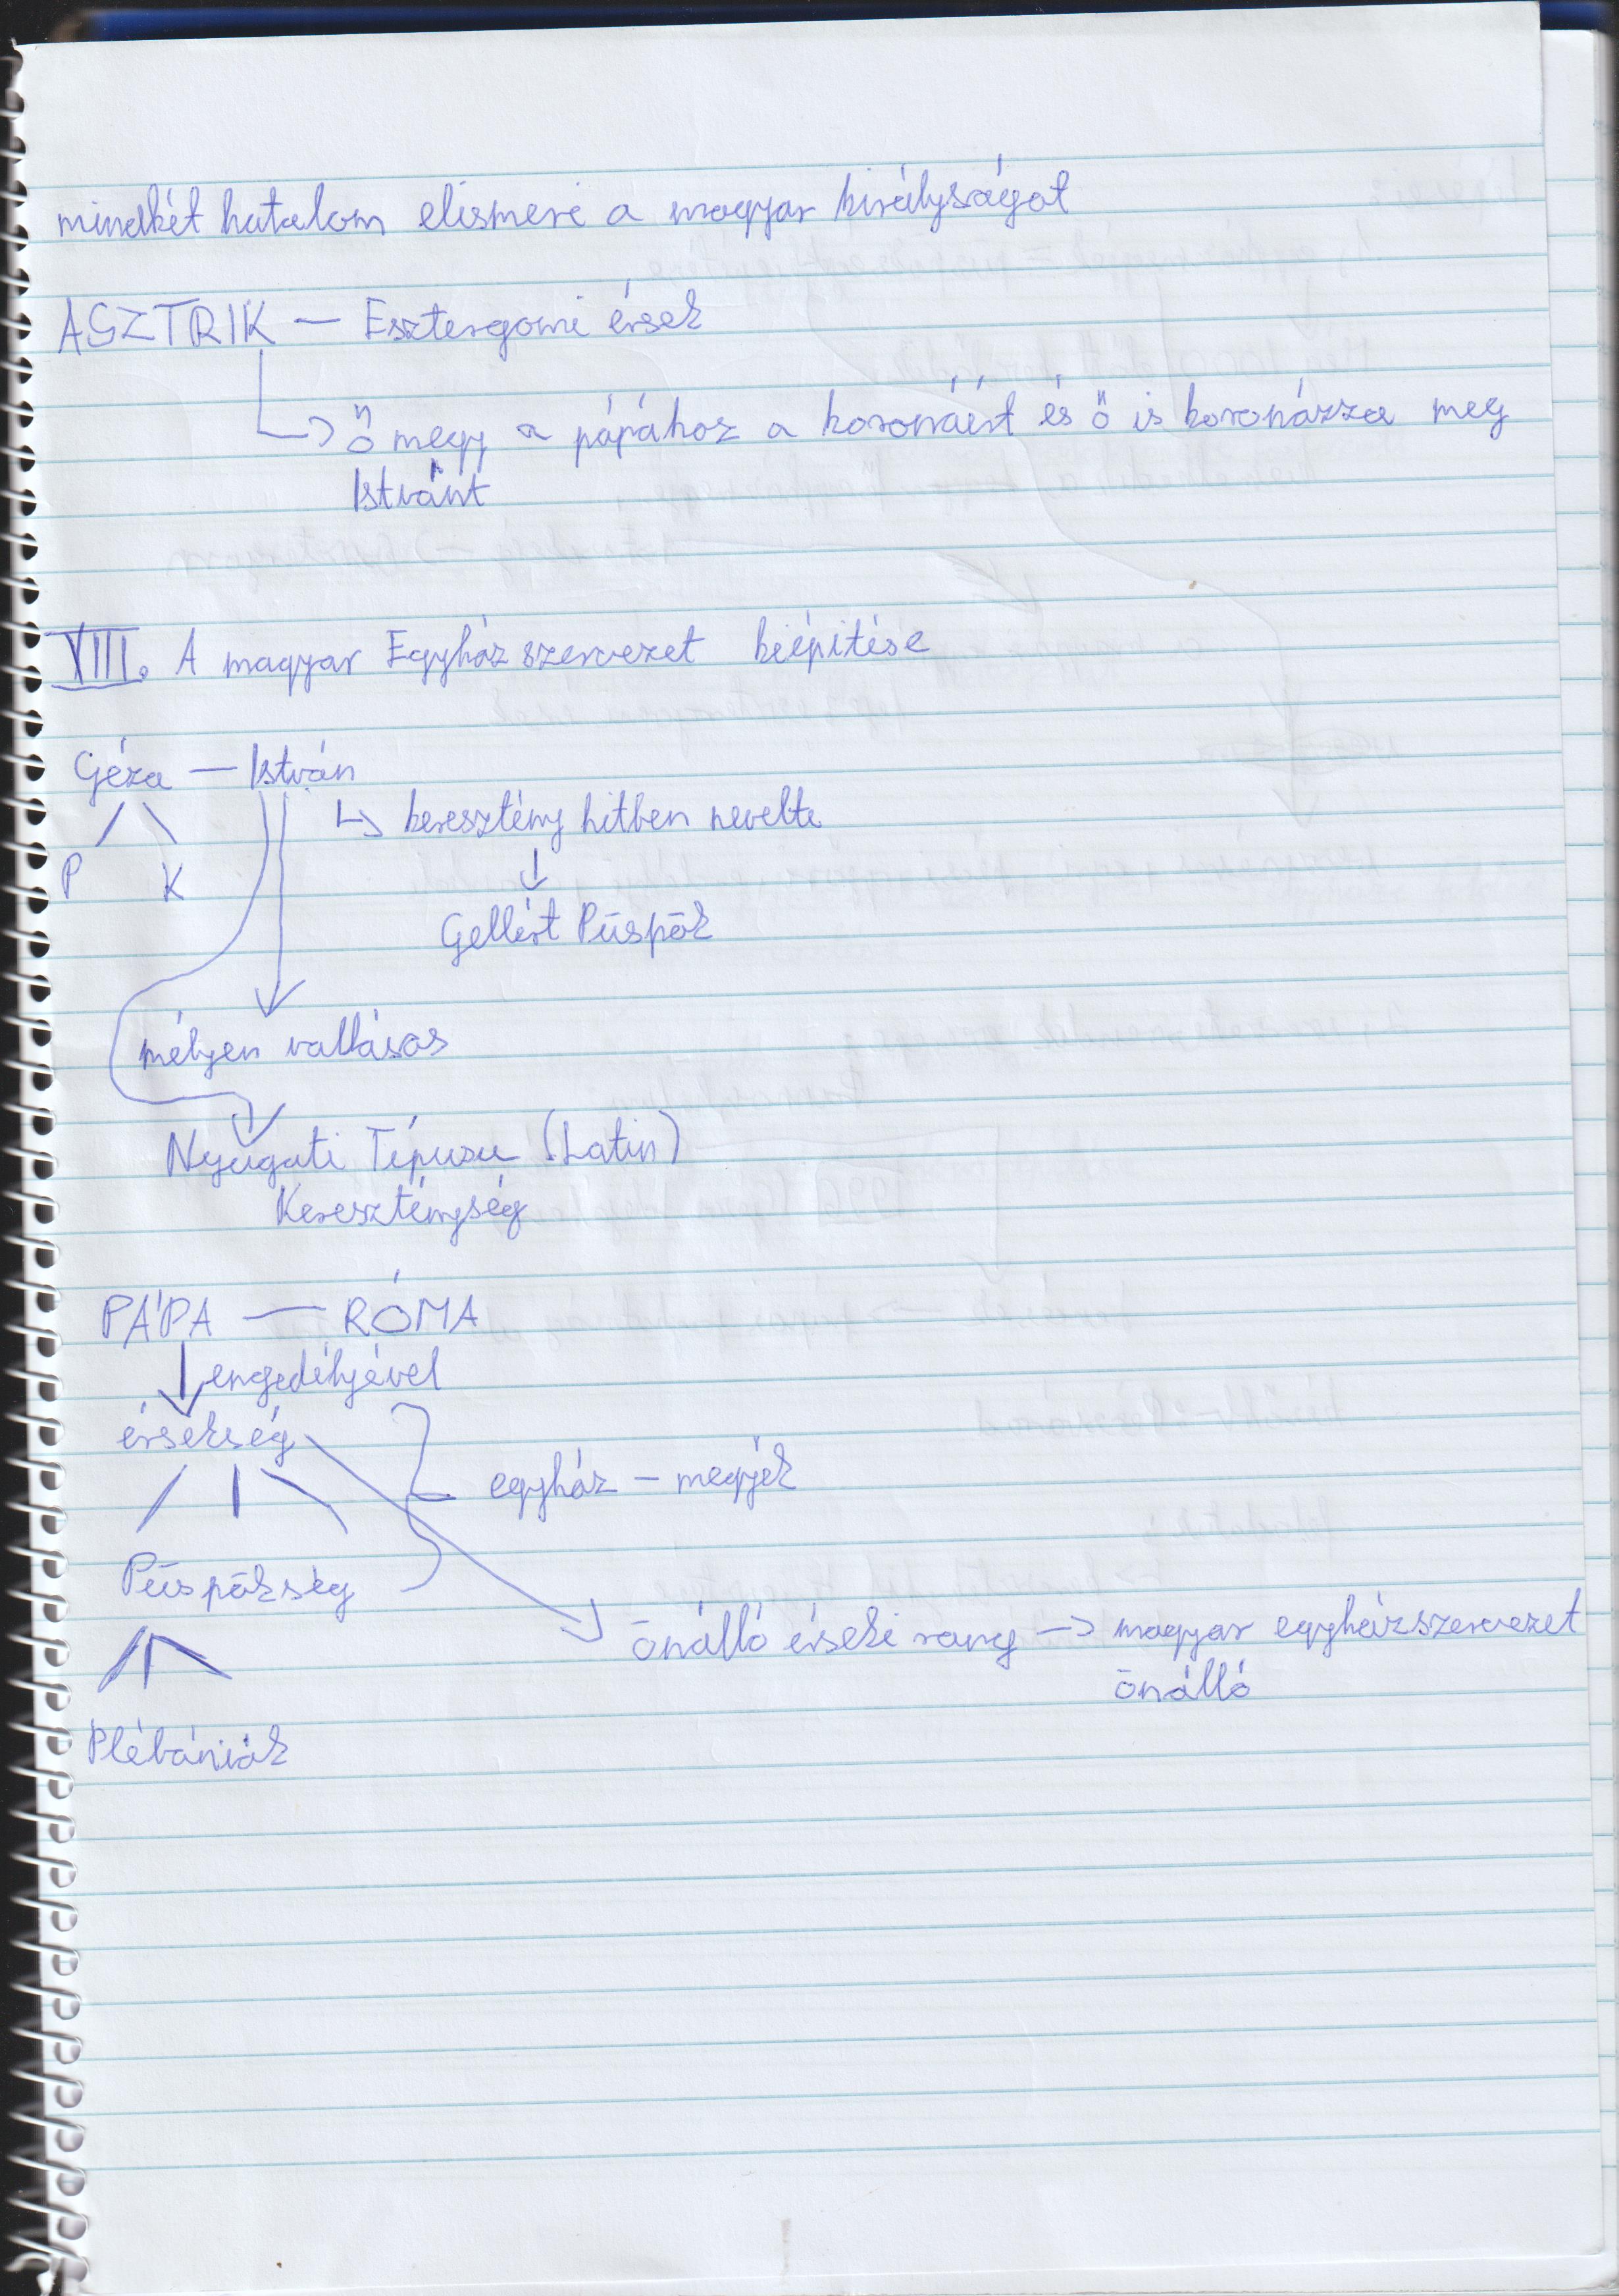 mindkét hatalom elismeri a magyar királyságot
ASZTRIK — Esztergomi érsek
ő megy a pápához a koronáért és ő is koronázza meg
Istvánt
VIII. A magyar Egyházszervezet kiépitése
Géza — István
↳ keresztény hitben nevelte
P K
↓
Gellért Püspök
mélyen vallásos
Nyugati Tipusu (Latin)
Kereszténység
PÁPA — RÓMA
↓ engedélyével
érsekség
egyház – megyék
Püspökség
önálló érseki rang → magyar egyházszervezet
önálló
Plébániák